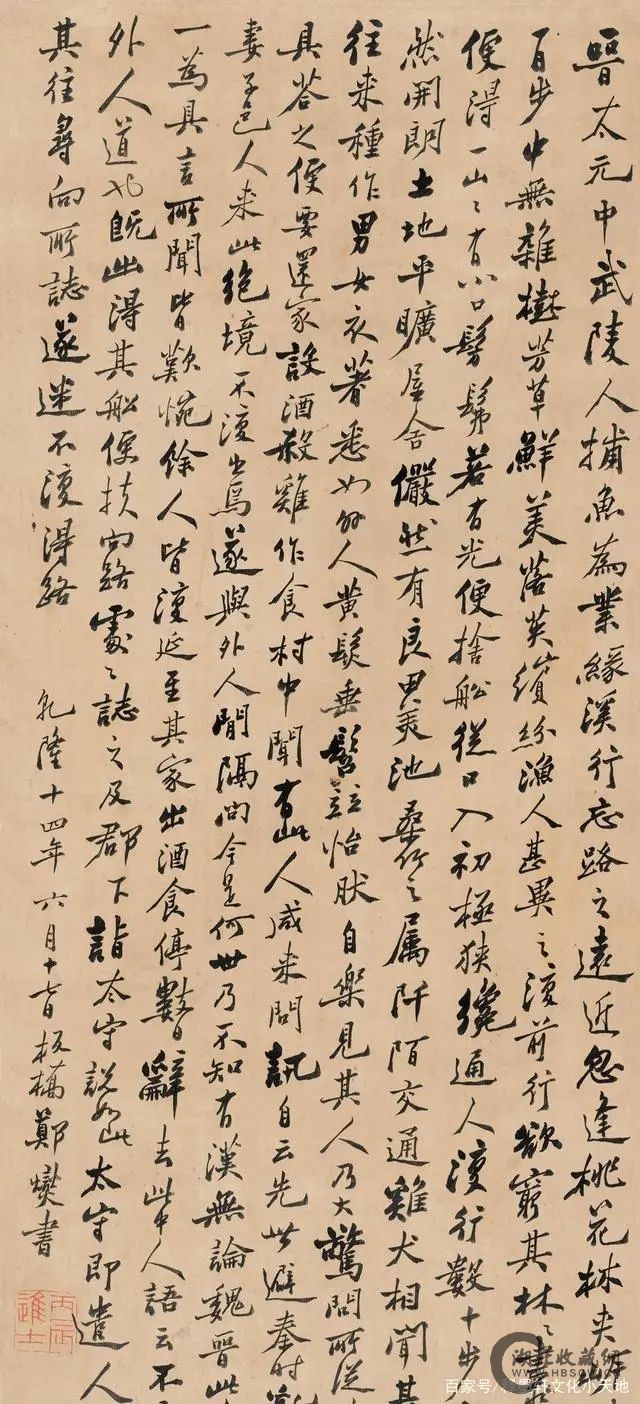 晉太元中武陵人捕魚為業緣溪行忘路之遠近忽逢桃花林夾岸
百步中無雜樹芳草鮮美落英繽紛漁人甚異之復前行欲窮其林〻盡
便得一山〻有小口髣髴若有光便捨船從口入初極狹纔通人復行數十步
然開朗土地平曠屋舍儼然有良田美池桑竹之属阡陌交通雞犬相聞其
往来種作男女衣著悉如外人黄髮垂髫竝怡然自樂見其人乃大驚問所從
具荅之便要還家設酒殺雞作食村中聞有此人咸来問訊自云先世避秦時亂
妻子邑人来此絶境不復出焉遂與外人間隔問今是何世乃不知有漢無論魏晉此
一為具言所聞皆歎惋餘人皆復延至其家出酒食停數日辭去此中人語云不
外人道也既出得其船便扶向路處〻誌之及郡下詣太守説如此太守即遣人
其往尋向所誌遂迷不復得路
乾隆十四年六月十七日板橋鄭燮書
丙辰進士
收藏网
百家号/文化小天地